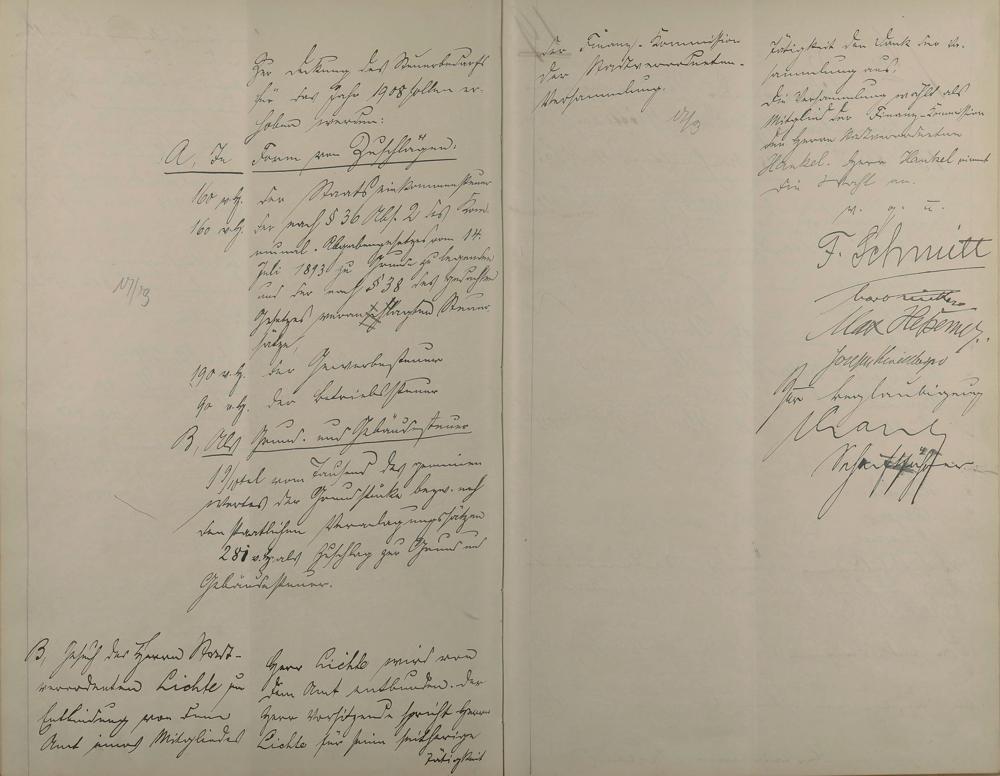 Zur Deckung des Steuerbedarfs
für das Jahr 1908 sollen er-
hoben werden:
A, In Form von Zuschlägen:
160 v.H. der Staatseinkommensteuer
160 v.H. der nach § 36 Abs. 2 des Kom-
munal-Abgabengesetzes vom 14.
Juli 1893 zu Grunde zu legenden
und der nach § 38 des gedachten
Gesetzes veranschlagten Steuer-
sätze,
190 v.H. der Gewerbesteuer
90 v.H. der Betriebssteuer
B, Als Grund- und Gebäudesteuer
vom Tausend des gemeinen
Wertes der Grundstücke bezw. nach
den staatlichen Veranlagungssätzen
281 v.H. als Zuschlag zur Grund und
Gebäudesteuer.
17/3
B, Gesuch des Herrn Stadt-
verordneten Lichte um
Entbindung von dem
Amt eines Mitgliedes
der Finanz-Kommission
der Stadtverordneten-
Versammlung.
17/3
Herr Lichte wird von
dem Amt entbunden. Der
Herr Vorsitzende spricht Herrn
Lichte für seine seitherige
Tätigkeit
Tätigkeit den Dank der Ver-
sammlung aus.
Die Versammlung wählt als
Mitglied der Finanz-Kommission
den Herrn Stadtverordneten
Hankel. Herr Hankel nimmt
die Wahl an.
v. g. u.
F. Schmitt
Max
Joseph
Für Beglaubigung
Schriftführer